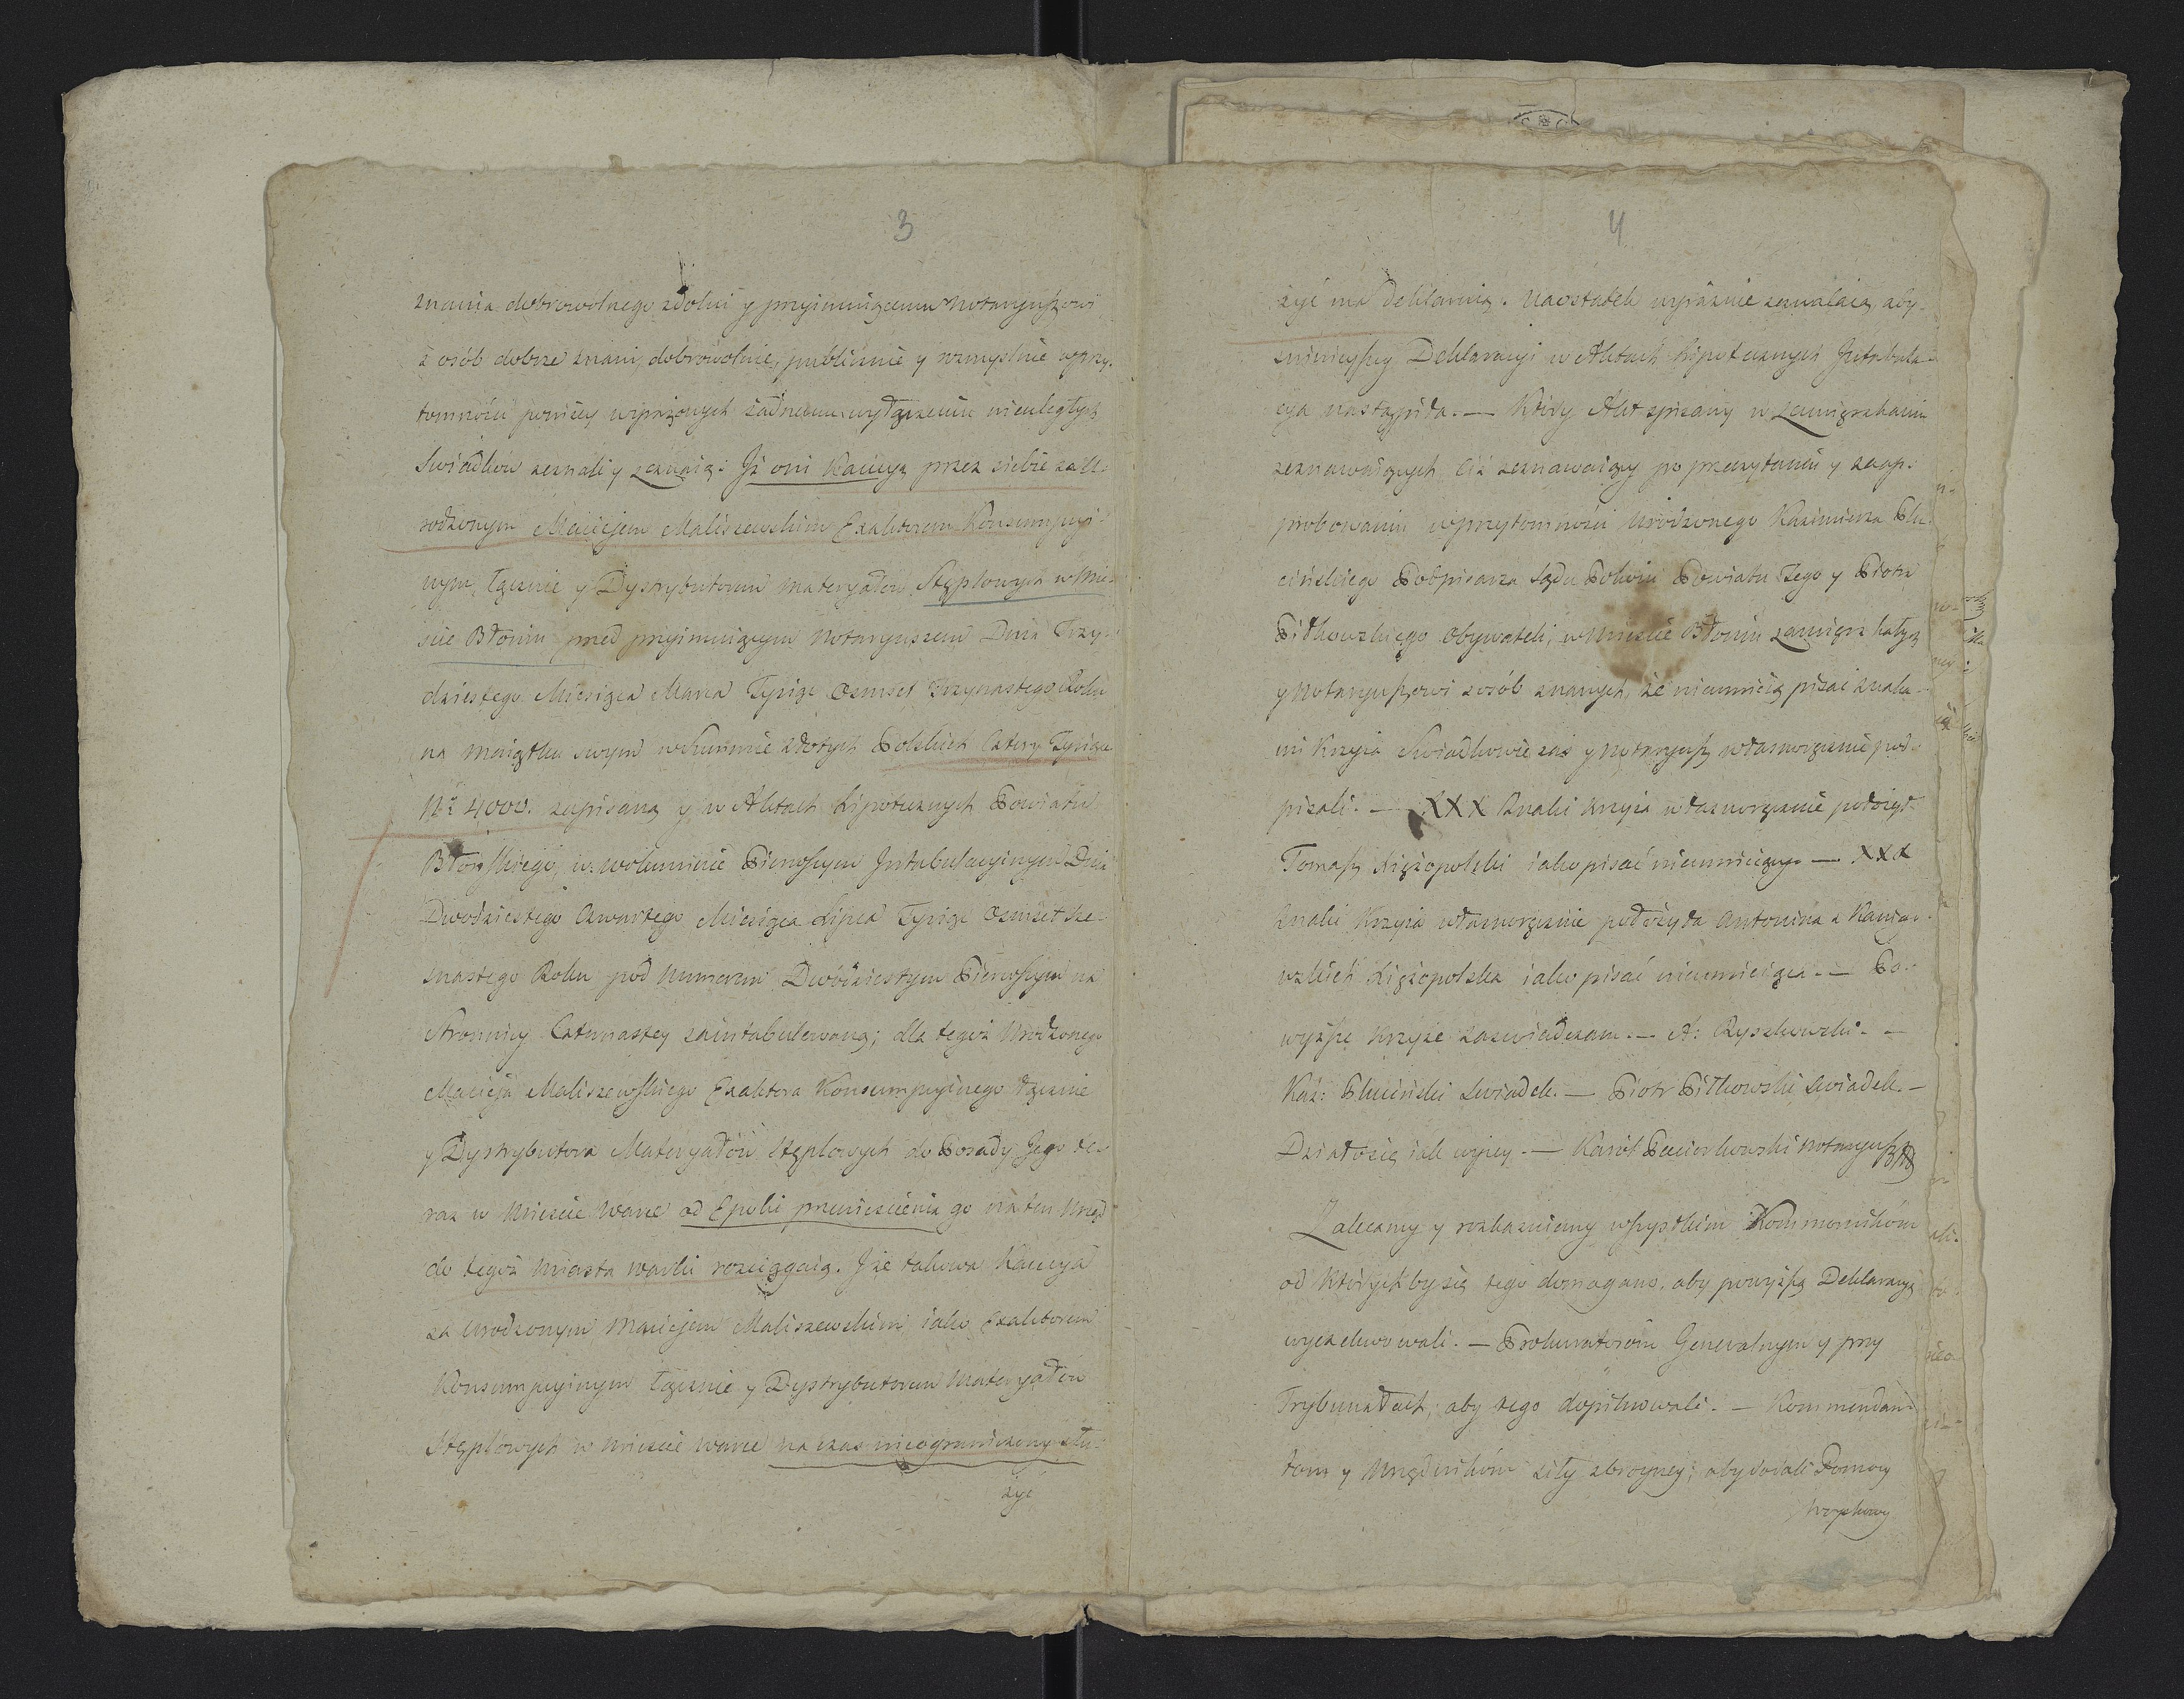 3
znania dobrowolnego zdolni y przyimuiącemu Notaryuszowi
z osób dobrze znani, dobrowolnie, publicznie y umyslnie w przy-
tomności poniżey wyrażonych żadnemu wyłączeniu nieuległych
Swiadków zeznali y zeznaią: Iż oni Kaucyą przez siebie za U-
rodzonym Maciejem Maliszewskim Exaktorem Konsumpcyi-
nym, łącznie y Dystrybutorem Materyałów Stęplowych w Mie-
scie Błoniu przed przyimuiącym Notaryuszem Dnia Trzy-
dziestego Miesiąca Marca Tysiąc Osmset Trzynastego Roku
na Maiątku swym w Summie Złotych Polskich Cztery Tysiące
Nro 4,000. zapisaną y w Aktach Hipotecznych Powiatu
Błońskiego, w woluminie Pierwszym Intabulacyinym Dnia
Dwódziestego Czwartego Miesiąca Lipca Tysiąc Osmset Sze-
snastego Roku pod Numerem Dwódziestym Pierwszym na
stronnicy Czternastey zaintabulowaną; dla tegoż Urodzonego
Macieja Maliszewskiego Exaktora Konsumpcyinego łącznie
y Dystrybutora Materyałów Stęplowych do Posady Jego te-
raz w Miescie Warce od Epoki przeniesienia go na ten Urząd
do tegoż Miasta Warki rozciągaią. I że takowa Kaucya
za Urodzonym Maciejem Maliszewskim iako Exaktorem
Konsumpcyinym łącznie y Dystrybutorem Materyałów
Stęplowych w Miescie Warce na czas nieograniczony słu-
żyć
4
żyć ma deklaruią. Naostatek wyraźnie zezwalaią aby
ninieyszey Deklaracyi w Aktach Hipotecznych Intabula-
cya nastąpiła. — Który Akt spisany w zamięszkaniu
zeznawaiących Ciż zeznawaiący po przeczytaniu y zaap-
probowaniu w przytomności Urodzonego Kazimierza Plu-
cińskiego Podpisarza Sądu Pokoiu Powiatu Tego y Piotra
Pitkowskiego Obywateli, w Miescie Błoniu zamięszkałych
y Notaryuszowi z osób znanych, że nieumieią pisać znaka-
mi Krzyża Swiadkowie zaś y Notaryusz własnoręcznie pod-
pisali. — XXX Znaki Krzyża własnoręcznie położył
Tomasz Xiężopolski iako pisać nieumieiący — XXX
Znaki Krzyża własnoręcznie położyła Antonina z
Xiężopolska iako pisać nieumieiąca. — Po-
wyższe Krzyże zaswiadczam. — A: Ryszkowski. —
Kaz: Pluciński Swiadek. — Piotr Pitkowski Swiadek. —
Działo się iak wyżey. — Karol Notaryusz
Zalecamy y rozkazuiemy wszystkim Kommornikom
od których by się tego domagano, aby powyższą Deklaracyą
wyexekwowali. — Prokuratorom Generalnym y przy
Trybunałach, aby tego dopilnowali. — Kommendan-
tom y Urzędnikom siły zbroyney, aby dodali Pomocy